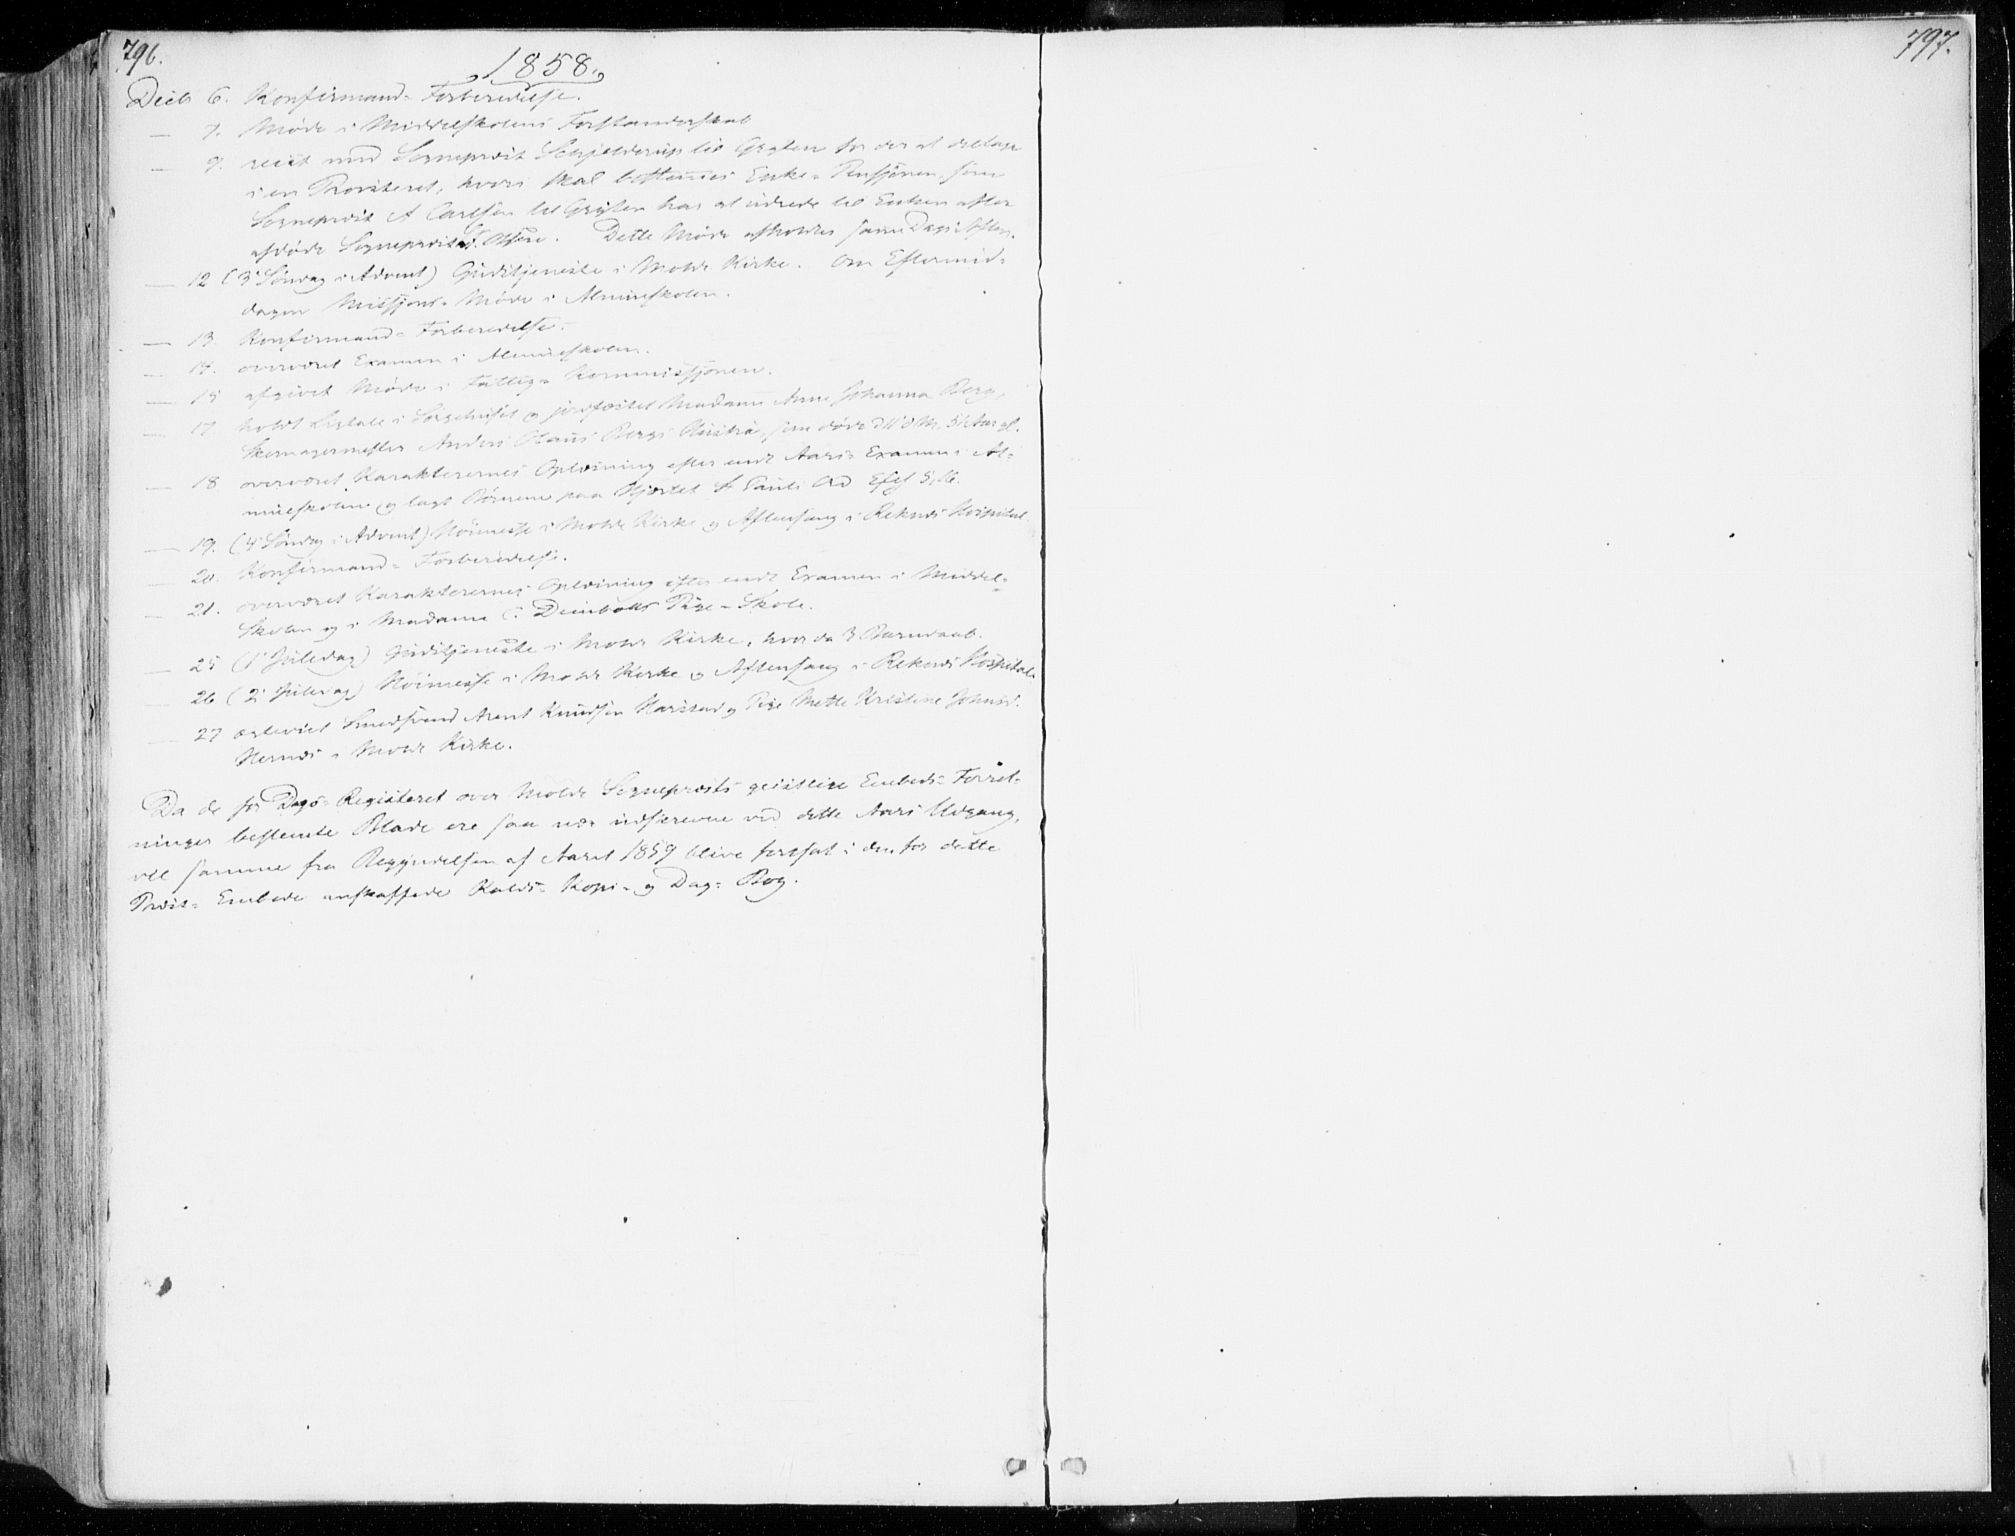 796.
1858.
Decb 6. Konfirmand- Forberedelse.
— 7. Møde i Middelskolens Forstanderskab
— 9. reist med Sogneprest Schjelderup til Grytten for der at deltage
i en Provsteret, hvori skal bestemmes Enke-Pensjonen, som
Sogneprest A Carlsen til Grytten har at udrede til Enken efter
afdøde Sogneprest Olsen. Dette Møde afholdtes samme Dags Aften.
— 12 (3' Søndag i Advent) Gudstjeneste i Molde Kirke. Om Eftermid-
dagen Missjons-Møde i Almueskolen.
— 13 Konfirmand- Forberedelse.
— 14. overværet Examen i Almueskolen.
— 15 afgivet Møde i Fattig- Kommissjonen.
— 17 holdt Ligtale i Sørgehuset og jordfæstet Madame Anne Johanna Berg,
Skomagermester Anders Olaus Bergs Hustru, som døde d. 11' d. M. 51 Aar gl.
— 18 overværet Karakterernes Oplæsning efter endt Aars- Examen i Al-
mueskolen og lagt Børnene paa Hjertet St Pauli Ord Efes 5,16.
— 19. (4' Søndag i Advent) Høimesse i Molde Kirke og Aftensang i Reknæs Hospital.
— 20. Konfirmand- Forberedelse.
— 21. overværet Karakterernes Oplæsning efter endt Examen i Middel-
Skolen og i Madame C. Deinbolls Pige-Skole.
— 25 (1' Juledag) Gudstjeneste i Molde Kirke, hvor da 3 Barnedaab.
— 26 (2' Juledag) Høimesse i Molde Kirke og Aftensang i Reknæs Hospital.
— 27 ægteviet Smedsvend Arent Knudsen Harstad og Pige Mette Kristine Johnsd.
Hernæs i Molde Kirke.
Da de for Dags-Registeret over Molde Sogneprests geistlige Embeds- Forret-
ninger bestemte Blade ere saa nær udskrevne ved dette Aars Udgang,
vil samme fra Begyndelsen af Aaret 1859 blive fortsat i den for dette
Prest- Embede anskaffede Kalds- Kopi- og Dag- Bog.
797.